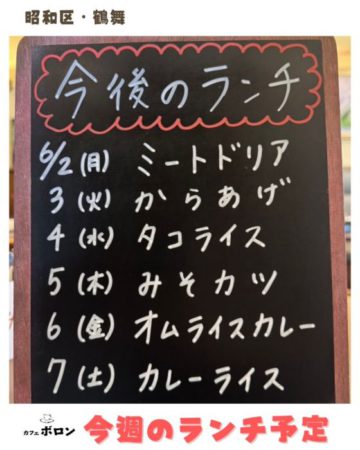 昭和区・鶴舞
今後のランチ
6/2(月) ミートドリア
3(火) からあげ
4(水) タコライス
5(木) みそカツ
6(金) オムライスカレー
7(土) カレーライス
カフェ ボロン
今週のランチ予定